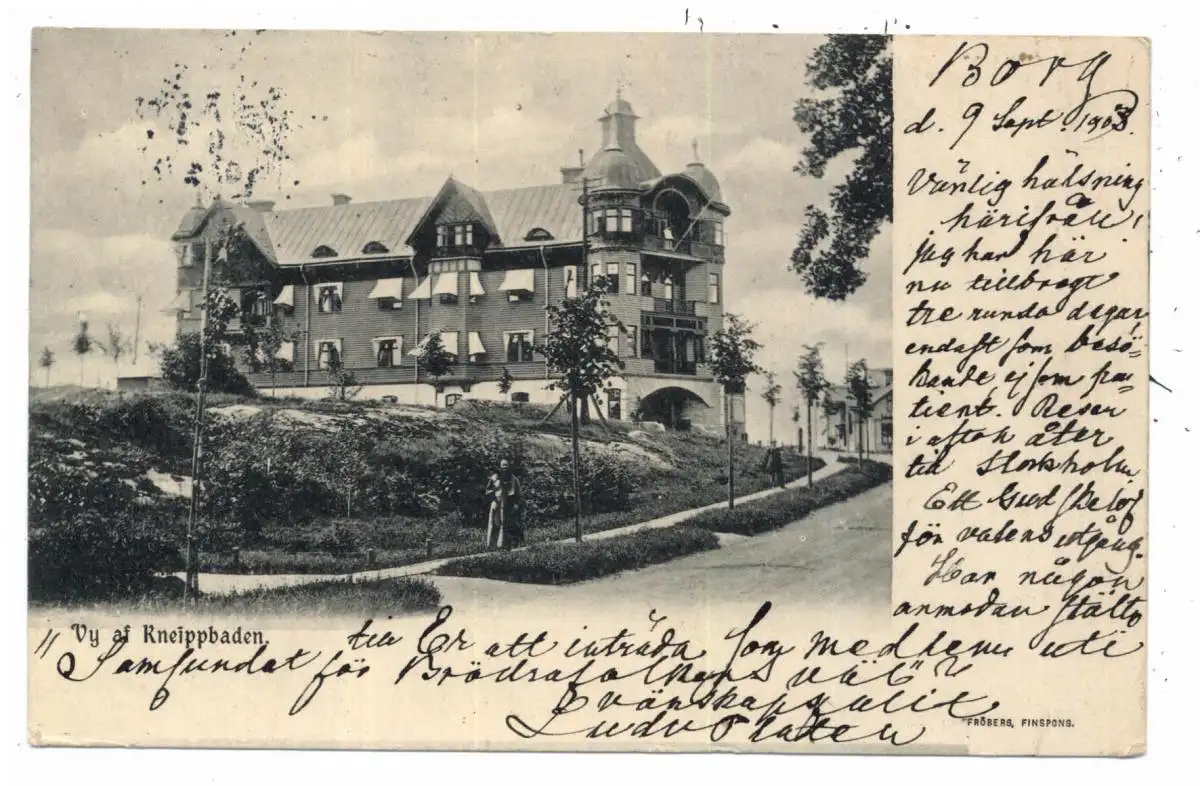 Borg
d. 9 Sept. 1903.
Vänlig hälsning
härifrån!
Jag har här
nu tillbragt
tre runda dagar,
endast som besö-
kande ej som pa-
tient. Reser
i afton åter
till Stockholm
Ett Gud ske lof
för valens utgång.
Har någon
anmodan stälts
Vy af Kneippbaden.
till Er att inträda som medlem uti
"Samfundet för Brödrafolkens väl"?
Vänskapsfullt
Ludv
FRÖBERG, FINSPONG.